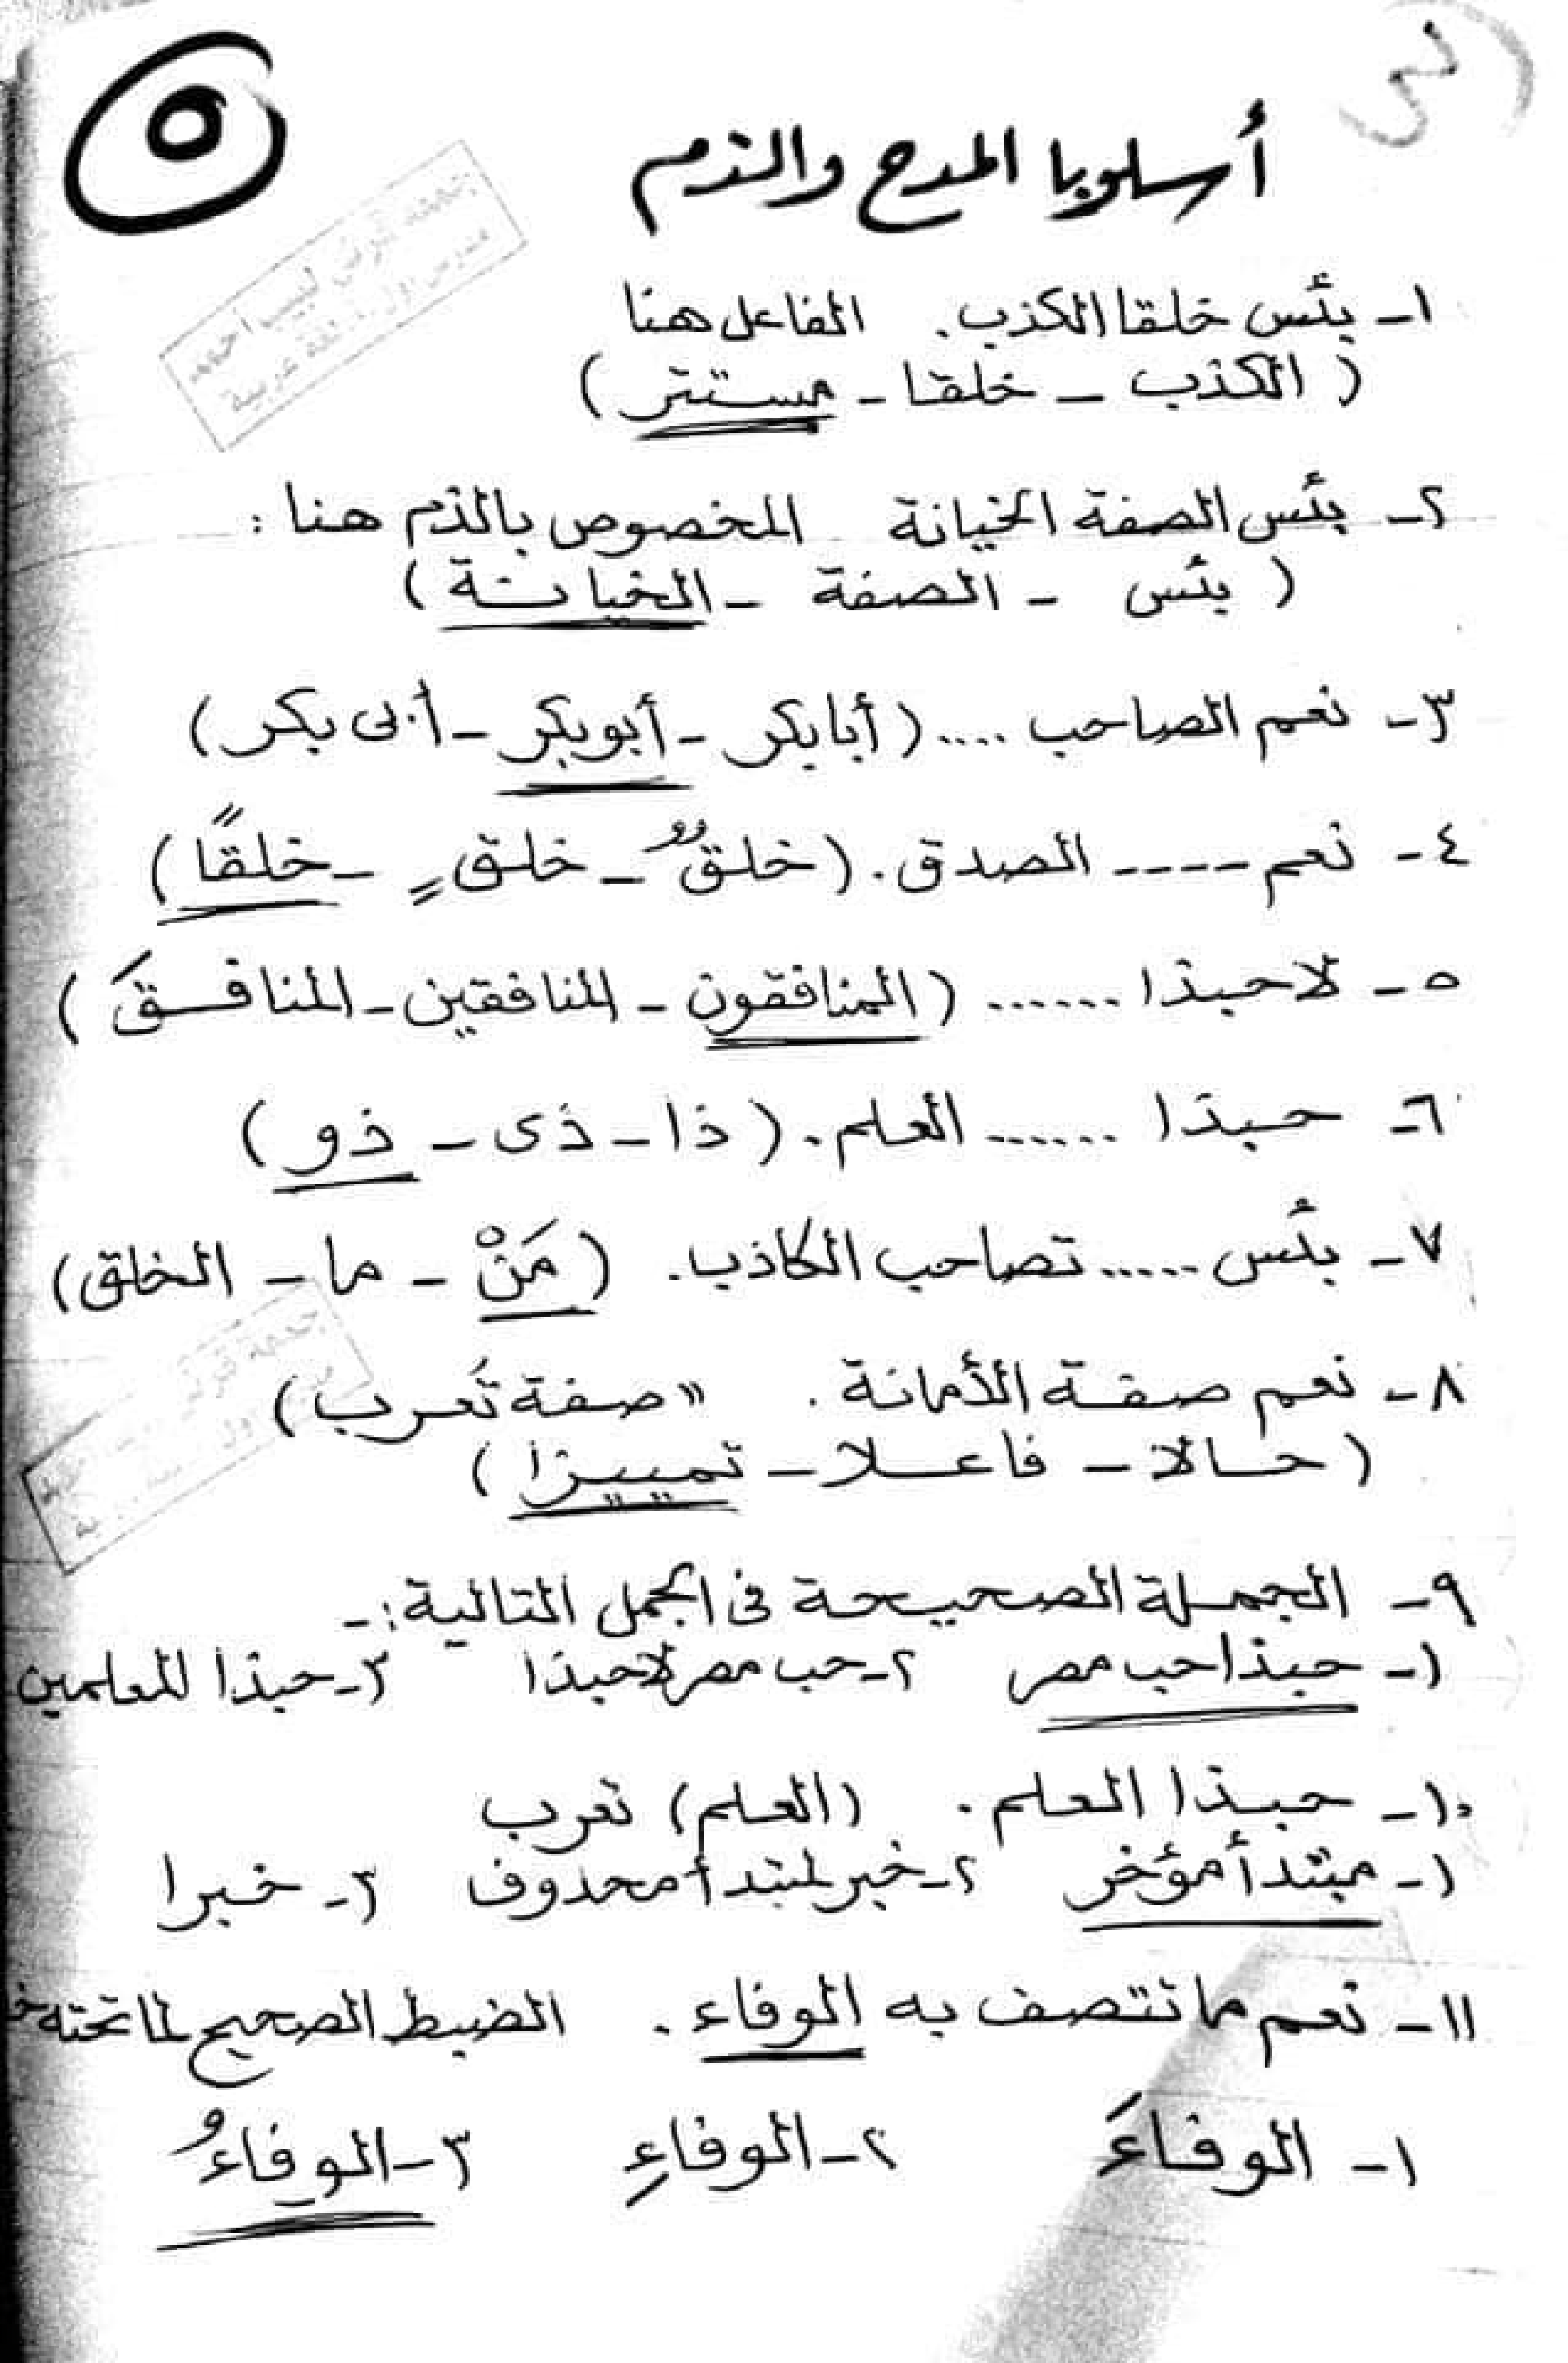 ٥
أسلوبا المدح والذم
١- بئس خلقا الكذب. الفاعل هنا
( الكذب - خلقا - مستتر )
٢- بئس الصفة الخيانة المخصوص بالذم هنا :
( بئس - الصفة - الخيانة )
٣- نعم الصاحب .... ( أبا بكر - أبو بكر - أبى بكر )
٤- نعم ---- الصدق. ( خلقٌ - خلقٍ - خلقًا )
٥- لاحبذا ...... ( المنافقون - المنافقين - المنافقَ )
٦- حبذا ...... العلم. ( ذا - ذى - ذو )
٧- بئس ..... تصاحب الكاذب. ( مَنْ - ما - الخلق )
٨- نعم صفة الأمانة. " صفة تُعرب )
( حالا - فاعلا - تمييزا )
٩- الجملة الصحيحة فى الجمل التالية :-
١- حبذا حب مصر ٢- حب مصر لاحبذا ٣- حبذا المعلمين
١٠- حبذا العلم. ( العلم ) تعرب
١- مبتدأ مؤخر ٢- خبر لمبتدأ محذوف ٣- خبرا
١١- نعم ما تتصف به الوفاء. الضبط الصحيح لما تحته
١- الوفاءَ ٢- الوفاءِ ٣- الوفاءُ